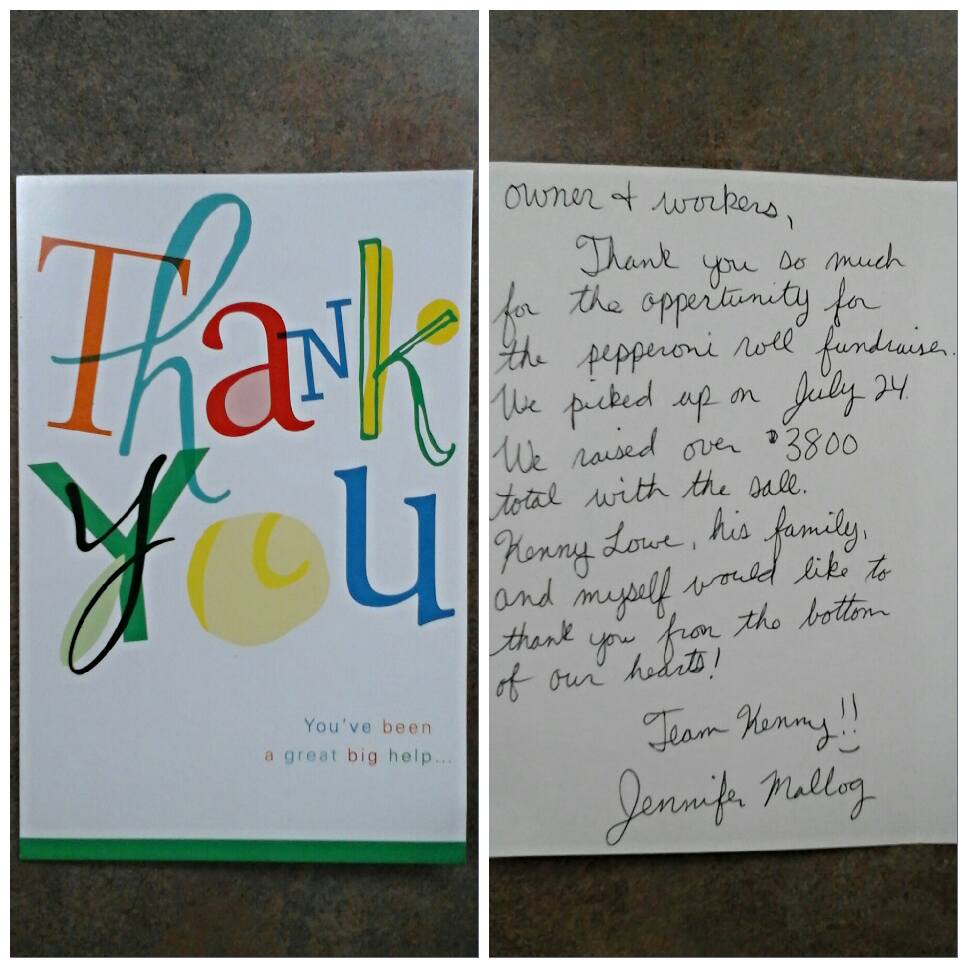 Thank
You
You've been
a great big help...
owner & workers,
Thank you so much
for the oppertunity for
the pepperoni roll fundraiser.
We picked up on July 24.
We raised over $3800
total with the sale.
Kenny Lowe, his family,
and myself would like to
thank you from the bottom
of our hearts!
Team Kenny!!
Jennifer Mallog